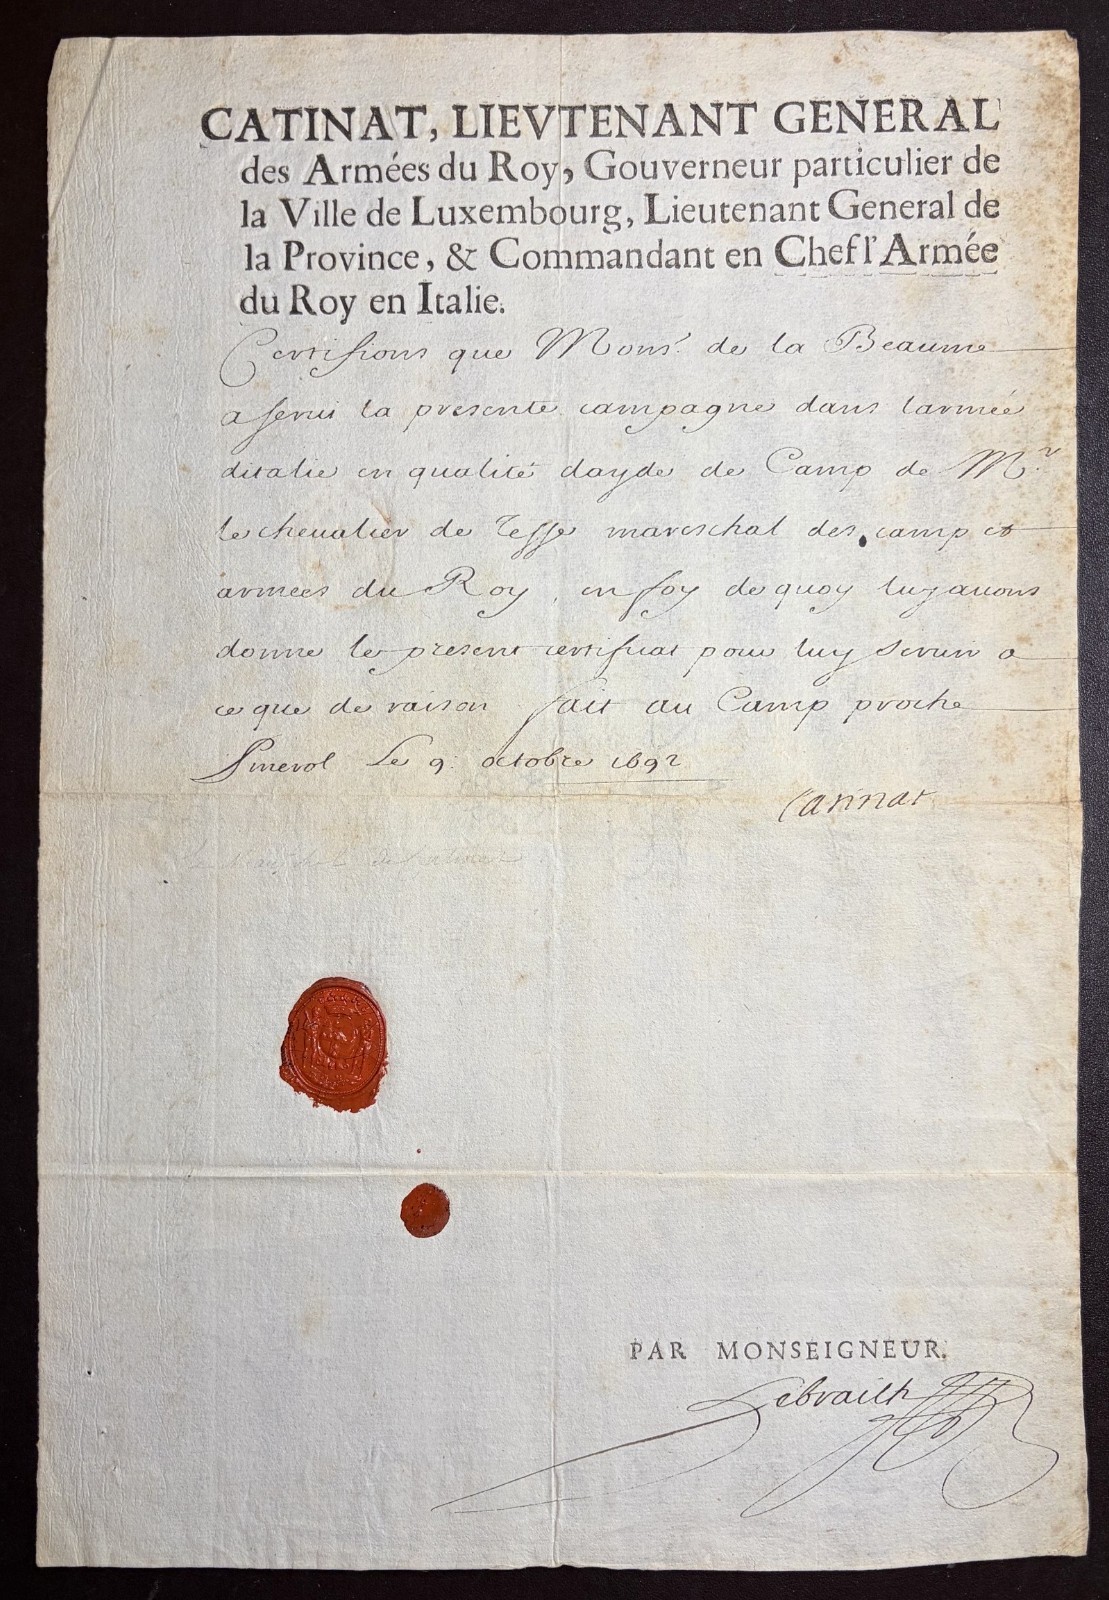 CATINAT, LIEVTENANT GENERAL
des Armées du Roy, Gouverneur particulier de
la Ville de Luxembourg, Lieutenant General de
la Province, & Commandant en Chef l'Armée
du Roy en Italie.
Certifions que Monsr. de la Beaume
a serui la presente campagne dans larmée
ditalie en qualité dayde de Camp de Mr
le cheualier de Tesse mareschal des camp et
armees du Roy, en foy de quoy luy auons
donne le present certificat pour luy seruir a
ce que de raison fait au Camp proche
Pinerol Le 9. octobre 1692
Catinat
PAR MONSEIGNEUR.